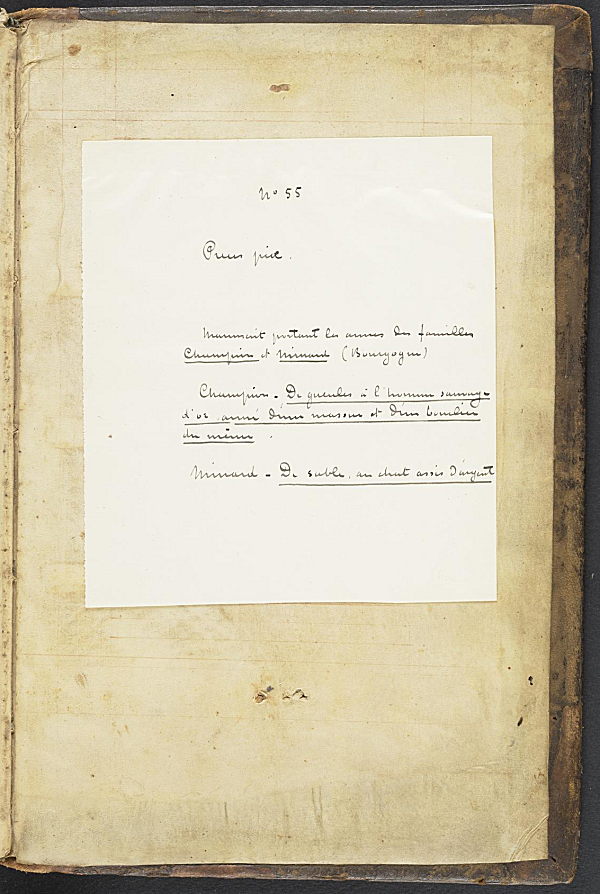 No 55
Manuscrit portant les armes des familles
Champion et Minard (Bourgogne)
Champion - De gueules à l'homme sauvage
d'or armé d'une massue et d'un bouclier
du même.
Minard - De sable, au chat assis d'argent